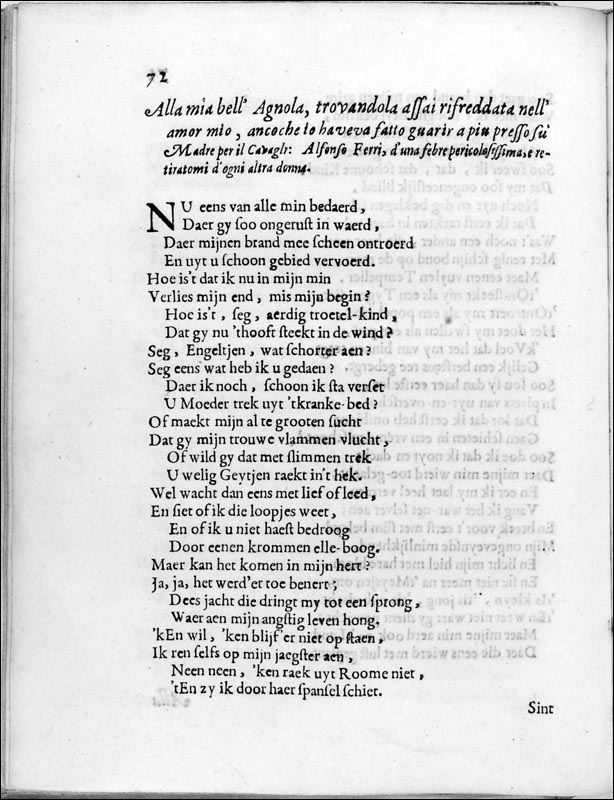 72
Alla mia bell' Agnola, trovandola assai rifreddata nell'
amor mio, ancoche io haveva fatto guarir a piu presso sù
Madre per il Cavaglr: Alfonso Ferri, d'una febre pericolosissima, e re-
tiratomi d'ogni altra donna.
NU eens van alle min bedaerd,
Daer gy soo ongerust in waerd,
Daer mijnen brand mee scheen ontroerd
En uyt u schoon gebied vervoerd.
Hoe is't dat ik nu in mijn min
Verlies mijn end, mis mijn begin?
Hoe is't, seg, aerdig troetel-kind,
Dat gy nu 'thooft steekt in de wind?
Seg, Engeltjen, wat schorter aen?
Seg eens wat heb ik u gedaen?
Daer ik noch, schoon ik sta verset
U Moeder trek uyt 'tkranke-bed?
Of maekt mijn al te grooten sucht
Dat gy mijn trouwe vlammen vlucht,
Of wild gy dat met slimmen trek
U welig Geytjen raekt in't hek.
Wel wacht dan eens met lief of leed,
En siet of ik die loopjes weet,
En of ik u niet haest bedroog
Door eenen krommen elle-boog.
Maer kan het komen in mijn hert?
Ja, ja, het werd'er toe benert;
Dees jacht die dringt my tot een sprong,
Waer aen mijn angstig leven hong.
'kEn wil, 'ken blijf er niet op staen,
Ik ren selfs op mijn jaegster aen,
Neen neen, 'ken raek uyt Roome niet,
'tEn zy ik door haer spansel schiet.
Sint